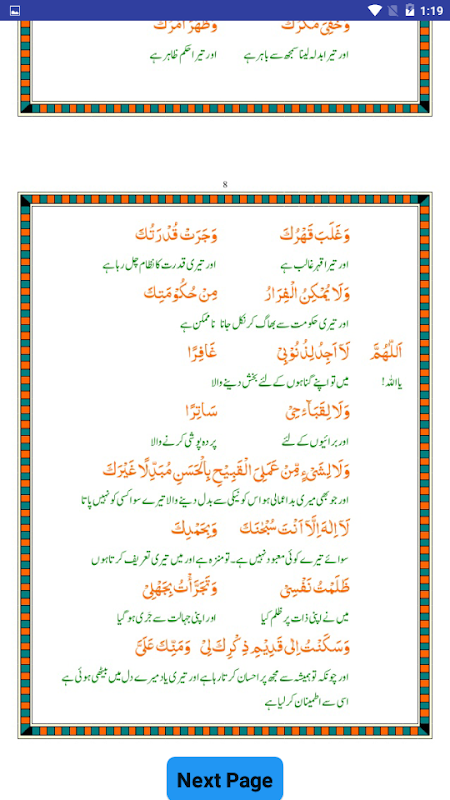 1:19
وَخَفِیَ مَکْرُكَ وَظَهَرَ اَمْرُكَ
اور تیرا بدلہ لینا سمجھ سے باہر ہے اور تیرا حکم ظاہر ہے
8
وَغَلَبَ قَهْرُكَ وَجَرَتْ قُدْرَتُكَ
اور تیرا قہر غالب ہے اور تیری قدرت کا نظام چل رہا ہے
وَلَا یُمْکِنُ الْفِرَارُ مِنْ حُکُوْمَتِكَ
اور تیری حکومت سے بھاگ کر نکل جانا ناممکن ہے
اَللّٰهُمَّ لَآ اَجِدُ لِذُنُوْبِیْ غَافِرًا
یا اللہ! میں تو اپنے گناہوں کے لئے بخش دینے والا
وَلَا لِقَبَآءِحِیْ سَاتِرًا
اور برائیوں کے لئے پردہ پوشی کرنے والا
وَلَا لِشَیْءٍ مِّنْ عَمَلِیَ الْقَبِیْحِ بِالْحَسَنِ مُبَدِّلًا غَیْرَكَ
اور جو بھی میری بداعمالی ہو اس کو نیکی سے بدل دینے والا تیرے سوا کسی کو نہیں پاتا
لَآ اِلٰهَ اِلَّآ اَنْتَ سُبْحٰنَكَ وَبِحَمْدِكَ
سوائے تیرے کوئی معبود نہیں ہے۔ تو منزہ ہے اور میں تیری تعریف کرتا ہوں
ظَلَمْتُ نَفْسِیْ وَتَجَرَّأْتُ بِجَهْلِیْ
میں نے اپنی ذات پر ظلم کیا اور اپنی جہالت سے جری ہو گیا
وَسَکَنْتُ اِلٰی قَدِیْمِ ذِکْرِكَ لِیْ وَمَنِّكَ عَلَیَّ
اور چونکہ تو ہمیشہ سے مجھ پر احسان کرتا رہا ہے اور تیری یاد میرے دل میں بیٹھی ہوئی ہے
اسی سے اطمینان کر لیا ہے
Next Page